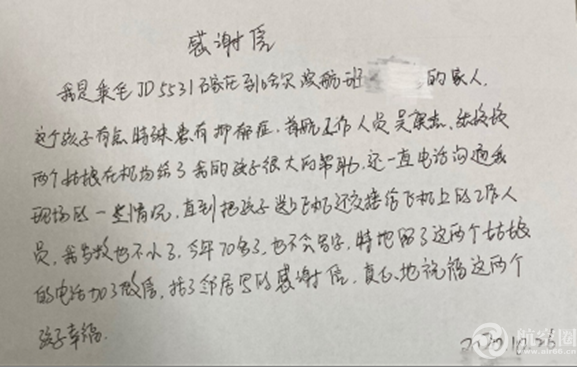 感谢信
我是乘坐JD5531石家庄到哈尔滨航班 的家人.
这个孩子有点特殊患有抑郁症. 首航工作人员吴
两个姑娘在机场给了我的孩子很大的帮助. 还一直电话沟通我
现场的一些情况, 直到把孩子送上飞机还交接给飞机上的工作人
员, 我岁数也不小了, 今年70多了, 也不会写字, 特地留了这两个姑娘
的电话加了微信, 找了邻居写的感谢信, 真心地祝福这两个
孩子幸福.
10.26
航空圈